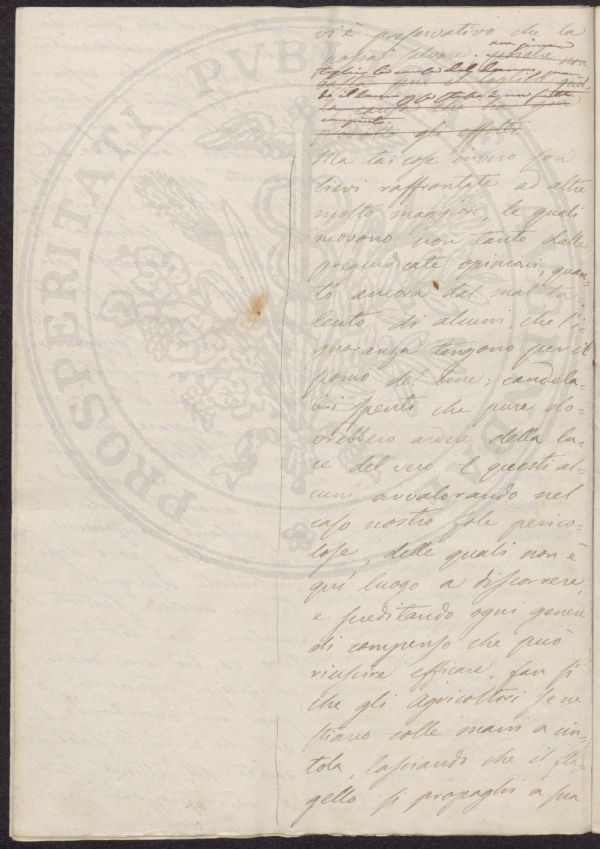 vi è preservativo che la
possa salvare.
gli effetti
Ma tai cose invero son
lievi raffrontate ad altre
molto maggiori, le quali
movono non tanto dalle
pregiudicate opinioni, quan-
to ancora dal mal ta-
lento di alcuni, che l'i-
gnoranza tengono per il
pomo del bene; candela-
bri spenti che pure do-
vrebbero ardere della lu-
ce del vero. E questi al-
cuni avvalorando nel
caso nostro fole perico-
lose, delle quali non è
qui luogo a discorrere,
e screditando ogni genere
di compenso che può
riuscire efficace, fan sì
che gli agricoltori se ne
stiano colle mani a cin-
tola, lasciando che il fla-
gello si propaghi a sua
PROSPERITATI PUBLICAE AUGENDAE